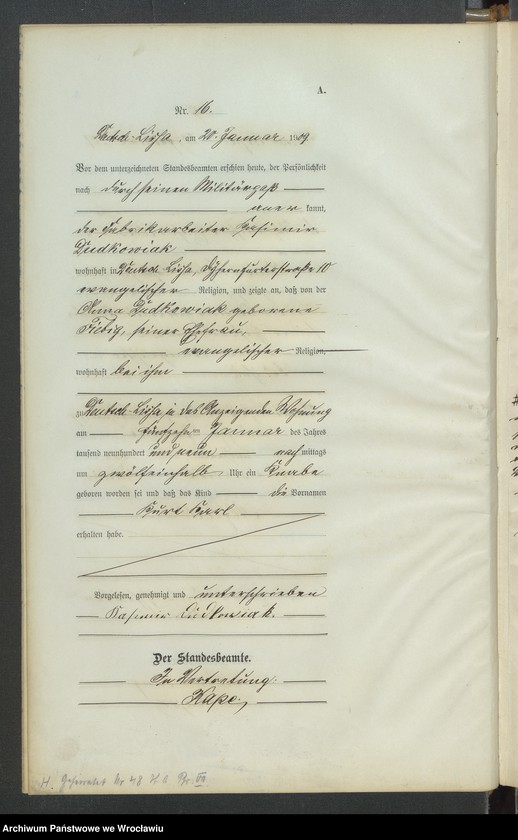 A.
Nr. 16.
Deutsch-Lissa, am 20. Januar 1909
Vor dem unterzeichneten Standesbeamten erschien heute, der Persönlichkeit
nach durch seinen Militärpaß
aner kannt,
der Fabrikarbeiter Kasimir
Dudkowiak
wohnhaft in Deutsch Lissa, Dyhernfurterstraße 10
evangelischer Religion, und zeigte an, daß von der
Anna Dudkowiak geborene
Fiebig, seiner Ehefrau,
evangelischer Religion,
wohnhaft bei ihm
zu Deutsch Lissa in des Anzeigenden Wohnung
am fünfzehn Januar des Jahres
tausend neunhundert und neun nach mittags
um zwölfeinhalb Uhr ein Knabe
geboren worden sei und daß das Kind die Vornamen
Kurt Karl
erhalten habe.
Vorgelesen, genehmigt und unterschrieben
Kasimir Dudkowiak.
Der Standesbeamte.
In Vertretung.
H. Geheiratet Nr 48
Archiwum Państwowe we Wrocławiu